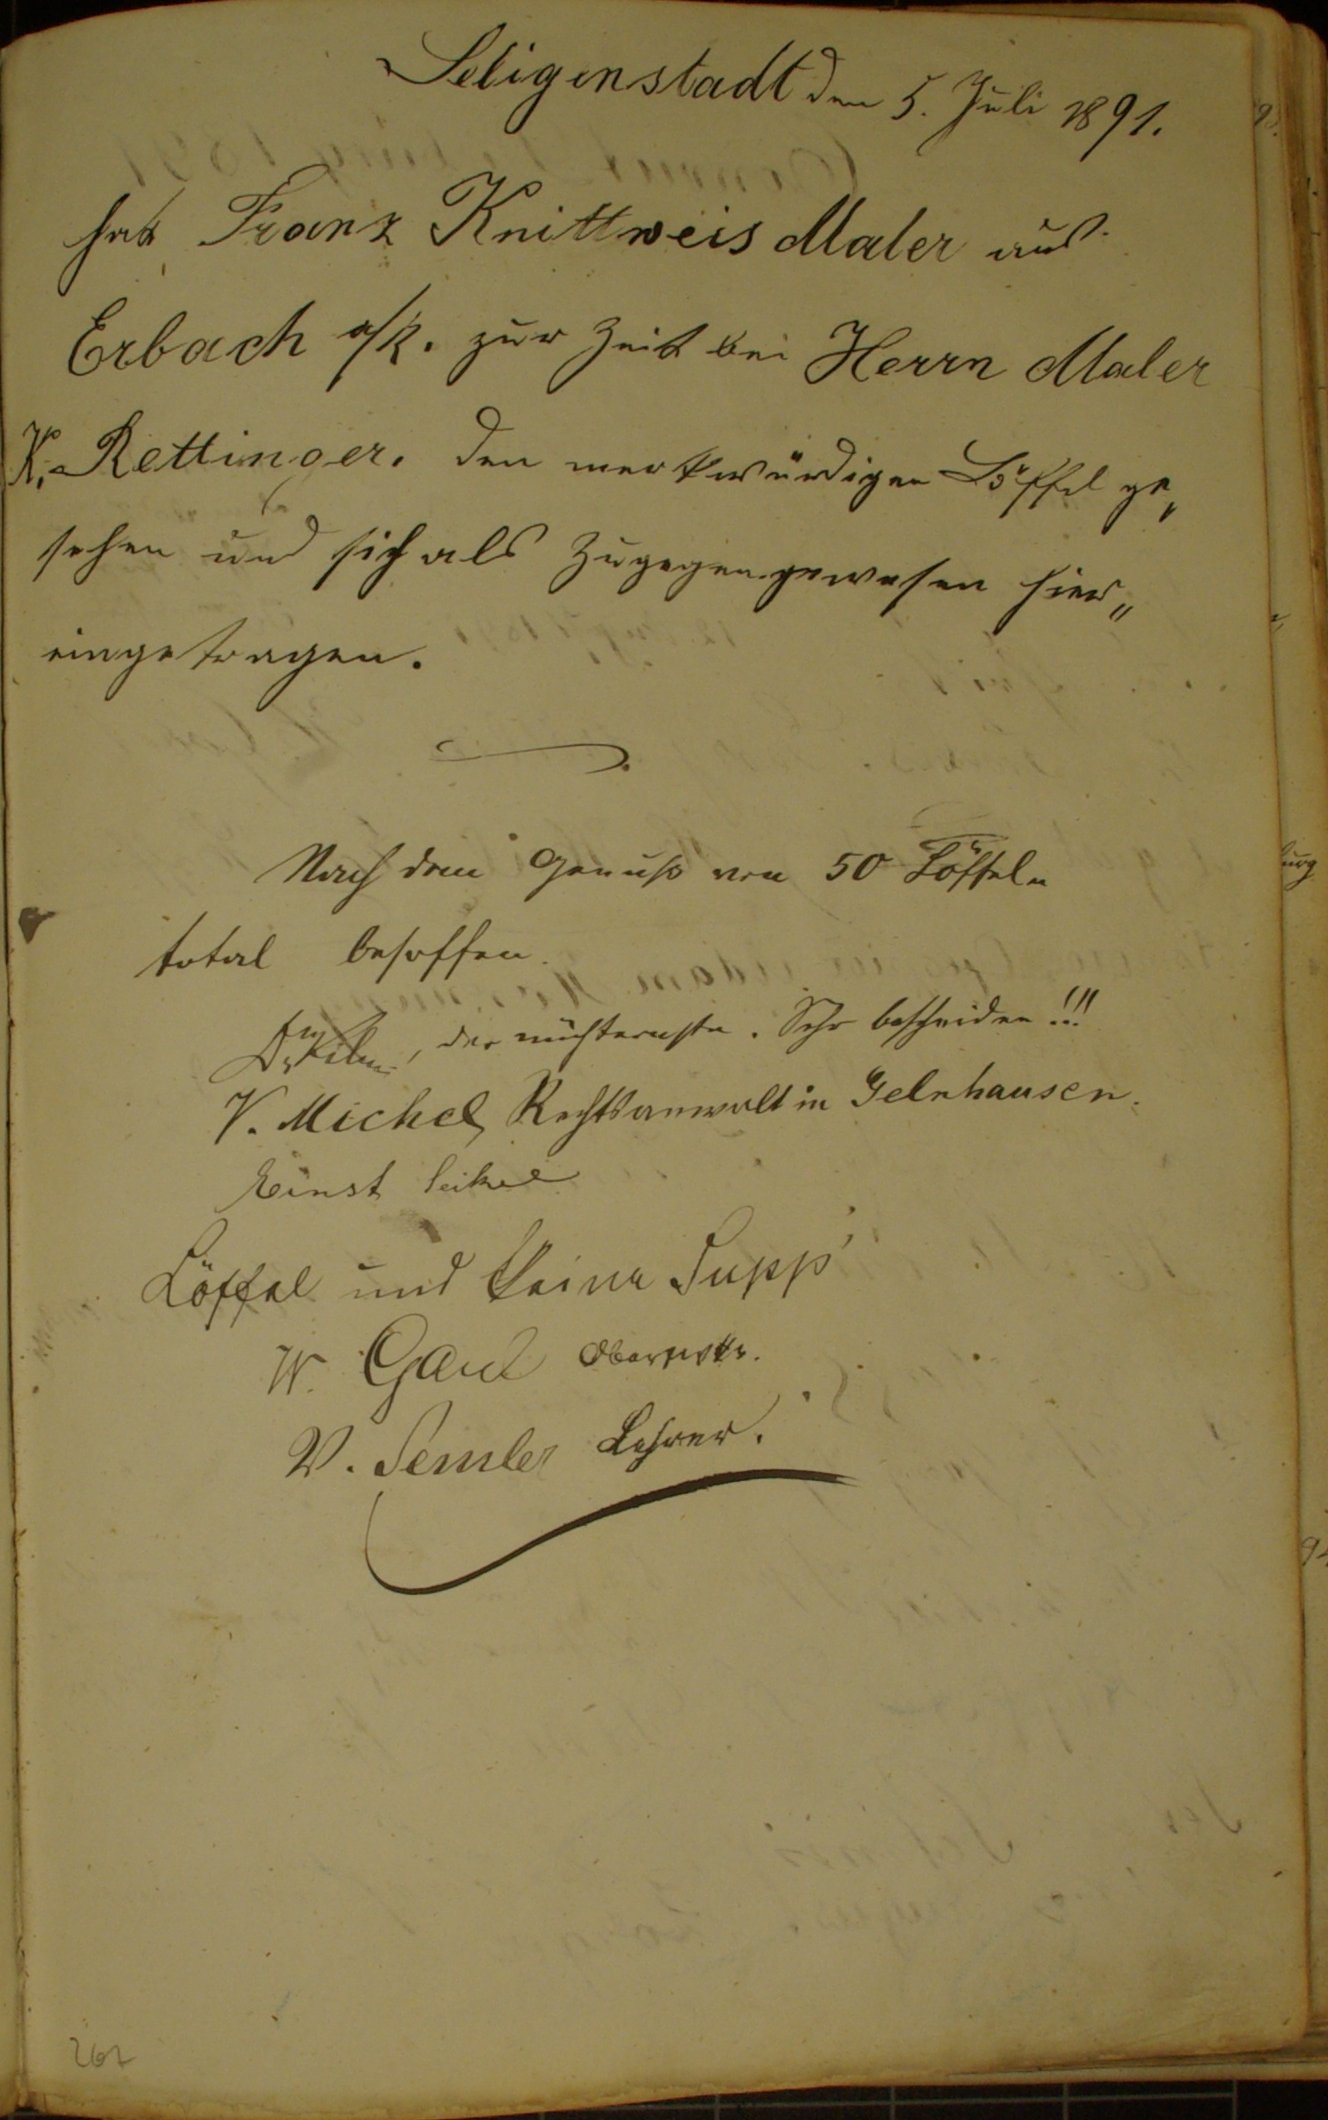 Seligenstadt den 5. Juli 1891.
hat Franz Knittweis Maler aus
Erbach a/R. zur Zeit bei Herrn Maler
K. Rettinger. den merkwürdigen Löffel ge„
sehen und sich als Zugegengewesen hier„
eingetragen.
Nach dem Genuß von 50 Löffeln
total besoffen.
der nüchternste. Sehr bescheiden!!!
V. Michel, Rechtsanwalt in Gelnhausen.
Ernst
Löffel und keine Supp'
W. Gaul
V. Semler Lehrer.
267